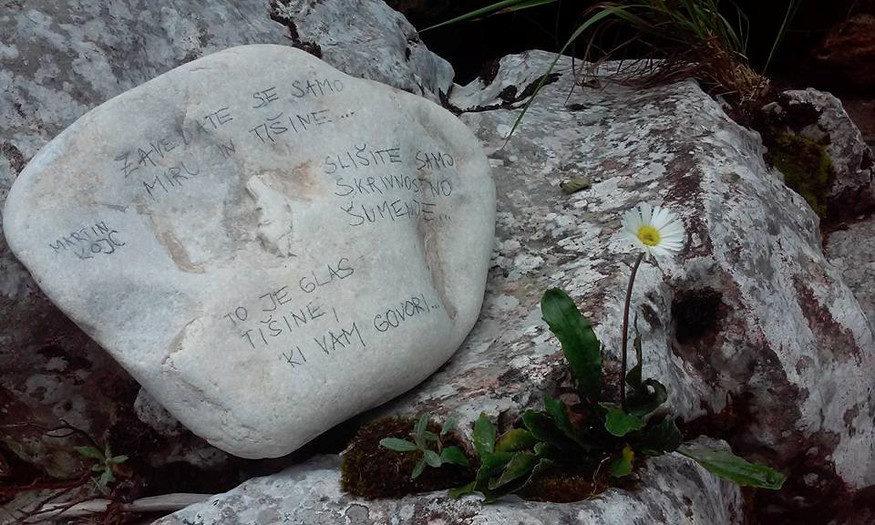 ZAVEDATE SE SAMO
MIRU IN TIŠINE...
SLIŠITE SAMO
SKRIVNOSTNO
ŠUMENJE...
MARTIN
KOJC
TO JE GLAS
TIŠINE,
KI VAM GOVORI...